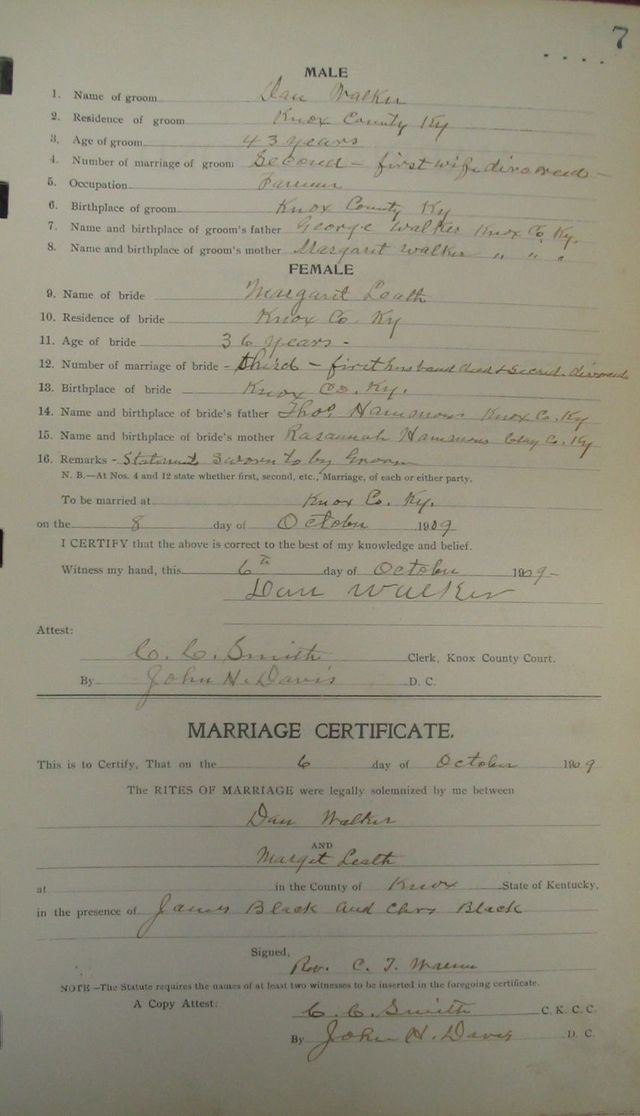 7
MALE
1. Name of groom Dan Walker
2. Residence of groom Knox County Ky
3. Age of groom 43 years
4. Number of marriage of groom Second - first wife divorced -
5. Occupation Farmer
6. Birthplace of groom Knox County Ky
7. Name and birthplace of groom's father George Walker Knox Co, Ky.
8. Name and birthplace of groom's mother Margarit Walker " " "
FEMALE
9. Name of bride Margarit Leath
10. Residence of bride Knox Co. Ky
11. Age of bride 36 years -
12. Number of marriage of bride - third - first husband died & second divorced
13. Birthplace of bride Knox Co. Ky.
14. Name and birthplace of bride's father Thos. Hammons Knox Co. Ky
15. Name and birthplace of bride's mother Rasannah Hammons Clay Co. Ky
16. Remarks - Statements sworn to by Groom
N. B.—At Nos. 4 and 12 state whether first, second, etc., Marriage, of each or either party.
To be married at Knox Co. Ky.
on the 8 day of October 1909
I CERTIFY that the above is correct to the best of my knowledge and belief.
Witness my hand, this 6th day of October 1909-
Dan Walker
Attest:
C. C. Smith Clerk, Knox County Court.
By John H. Davis D. C.
MARRIAGE CERTIFICATE.
This is to Certify, That on the 6 day of October 1909
The RITES OF MARRIAGE were legally solemnized by me between
Dan Walker
AND
Marget Leath
at in the County of Knox State of Kentucky,
in the presence of James Black and Black
Signed,
Rev. C. T.
NOTE—The Statute requires the names of at least two witnesses to be inserted in the foregoing certificate.
A Copy Attest: C. C. Smith C. K. C. C.
By John H. Davis D. C.